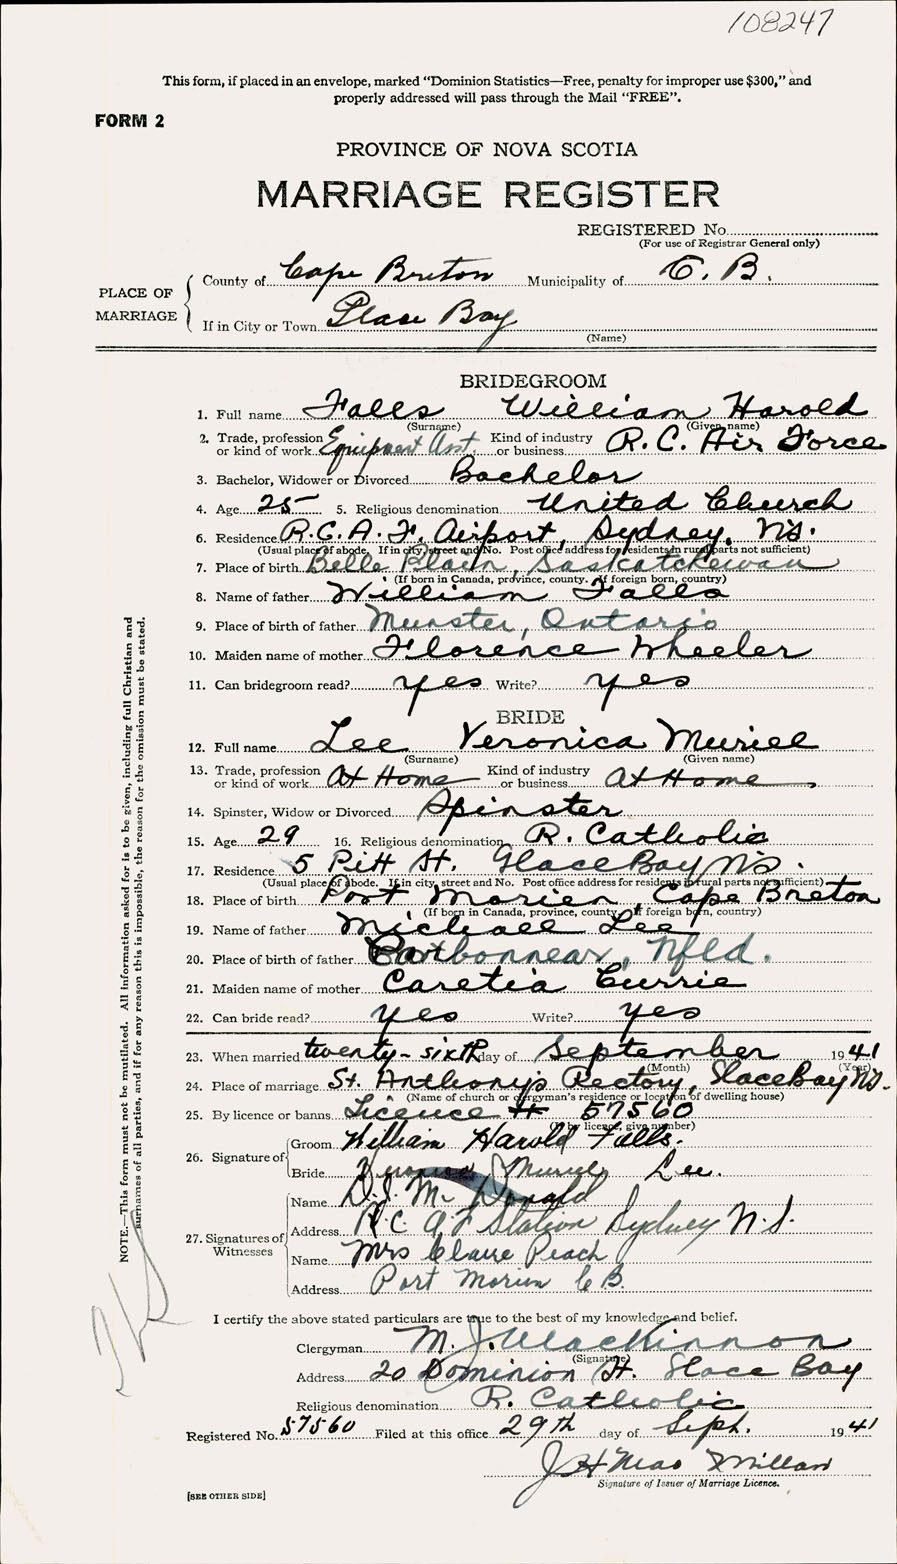 108247
This form, if placed in an envelope, marked “Dominion Statistics—Free, penalty for improper use $300,” and
properly addressed will pass through the Mail “FREE”.
FORM 2
PROVINCE OF NOVA SCOTIA
MARRIAGE REGISTER
REGISTERED No.
(For use of Registrar General only)
PLACE OF MARRIAGE
County of Cape Breton Municipality of C. B.
If in City or Town Glace Bay
(Name)
BRIDEGROOM
1. Full name Falls William Harold
(Surname) (Given name)
2. Trade, profession or kind of work Equipment Asst. Kind of industry or business R.C. Air Force
3. Bachelor, Widower or Divorced Bachelor
4. Age 25 5. Religious denomination United Church
6. Residence R.C.A.F. Airport, Sydney, N.S.
(Usual place of abode. If in city, street and No. Post office address for residents in rural parts not sufficient)
7. Place of birth Belle Plain, Saskatchewan
(If born in Canada, province, county. If foreign born, country)
8. Name of father William Falls
9. Place of birth of father Munster, Ontario
10. Maiden name of mother Florence Wheeler
11. Can bridegroom read? yes Write? yes
BRIDE
12. Full name Lee Veronica Muriel
(Surname) (Given name)
13. Trade, profession or kind of work At Home Kind of industry or business At Home
14. Spinster, Widow or Divorced Spinster
15. Age 29 16. Religious denomination R. Catholic
17. Residence 5 Pitt St. Glace Bay N.S.
(Usual place of abode. If in city, street and No. Post office address for residents in rural parts not sufficient)
18. Place of birth Port Morien, Cape Breton
(If born in Canada, province, county. If foreign born, country)
19. Name of father Michael Lee
20. Place of birth of father Carbonnear, Nfld.
21. Maiden name of mother Caretia Currie
22. Can bride read? yes Write? yes
23. When married twenty-sixth day of September 1941
(Month) (Year)
24. Place of marriage St. Anthony's Rectory, Glace Bay N.S.
(Name of church or clergyman's residence or location of dwelling house)
25. By licence or banns Licence # 57560
(If by licence, give number)
26. Signature of
Groom William Harold Falls.
Bride Veronica Muriel Lee.
27. Signatures of Witnesses
Name D.J. McDonald
Address R C A F Station Sydney N.S.
Name Mrs Claire Peach
Address Port Morien C B.
I certify the above stated particulars are true to the best of my knowledge and belief.
Clergyman M. J. MacKinnon
(Signature)
Address 20 Dominion St. Glace Bay
Religious denomination R. Catholic
Registered No. 57560 Filed at this office 29th day of Sept. 1941
J H MacMillan
Signature of Issuer of Marriage Licence.
[SEE OTHER SIDE]
NOTE.—This form must not be mutilated. All information asked for is to be given, including full Christian and
surnames of all parties, and if for any reason this is impossible, the reason for the omission must be stated.